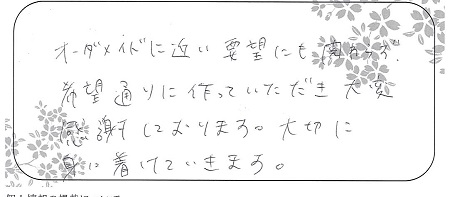 オーダメイドに近い要望にも関わらず、
希望通りに作っていただき大変
感謝しております。大切に
身に着けていきます。